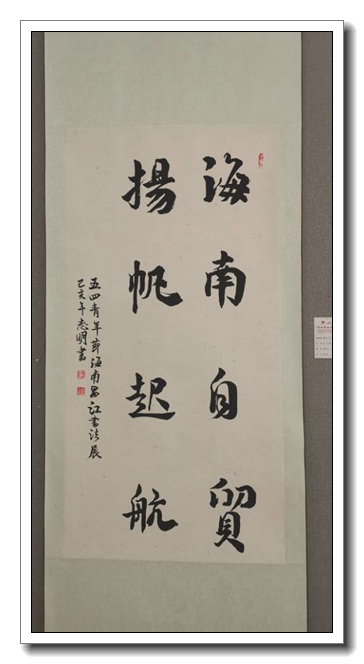 海南自貿
揚帆起航
五四青年節海南昌江書法展
己亥年志明書